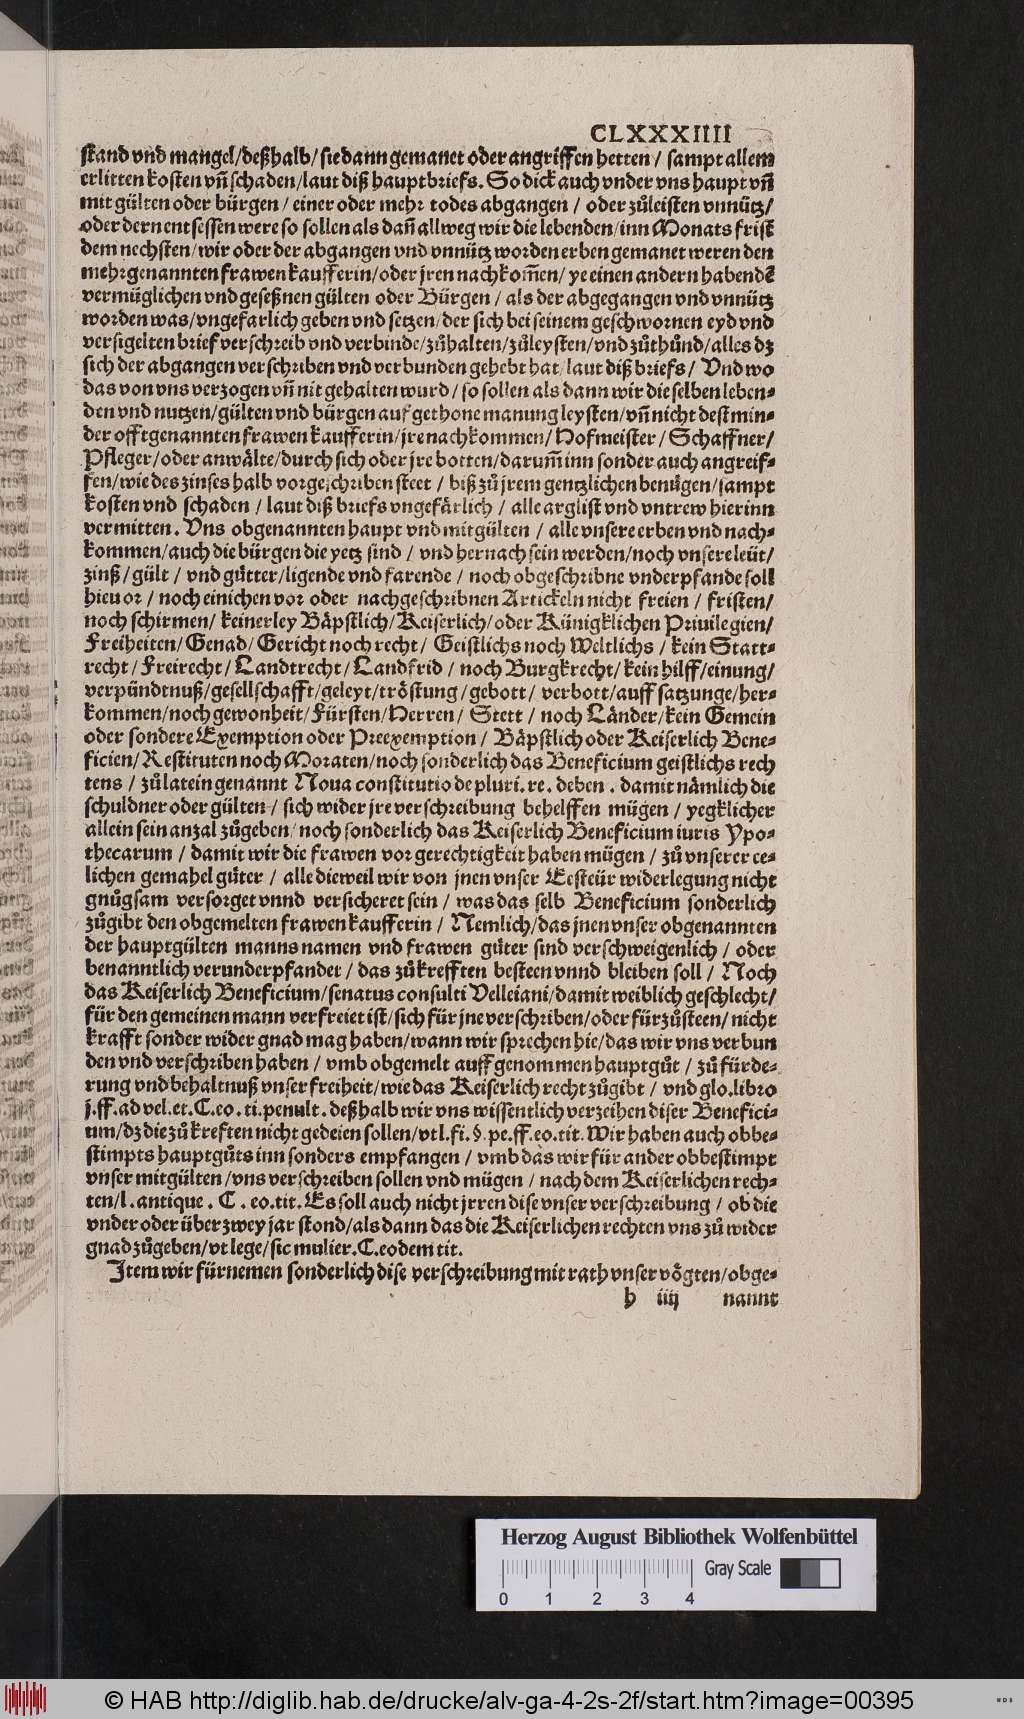 CLXXXIIII
stand vnd mangel/deßhalb/sie dann gemanet oder angriffen hetten / sampt allem
erlitten kosten vñ schaden/laut diß hauptbriefs. So dick auch vnder vns haupt vñ
mit gülten oder bürgen / einer oder mehr todes abgangen / oder zůleisten vnnütz/
oder dernentsessen were so sollen als dañ allweg wir die lebenden/inn Monats frist
dem nechsten/wir oder der abgangen vnd vnnütz worden erben gemanet weren den
mehrgenannten frawen kaufferin/oder jren nachkom̃en/ye einen andern habendẽ
vermüglichen vnd geseßnen gülten oder Bürgen / als der abgegangen vnd vnnütz
worden was/vngefarlich geben vnd setzen/der sich bei seinem geschwornen eyd vnd
versigelten brief verschreib vnd verbinde/zůhalten/zůleysten/vnd zůthůnd/alles dz
sich der abgangen verschriben vnd verbunden gehebt hat/laut diß briefs/ Vnd wo
das von vns verzogen vñ nit gehalten wurd/so sollen als dann wir die selben leben-
den vnd nutzen/gülten vnd bürgen auf gethone manung leysten/vñ nicht dest min-
der offtgenannten frawen kaufferin/jre nachkommen/Hofmeister/Schaffner/
Pfleger/oder anwälte/durch sich oder jre botten/darum̃ inn sonder auch angreif-
fen/wie des zinses halb vorgeschriben steet / biß zů jrem gentzlichen benügen/sampt
kosten vnd schaden / laut diß briefs vngefärlich / alle arglist vnd vntrew hierinn
vermitten. Vns obgenannten haupt vnd mitgülten / alle vnsere erben vnd nach-
kommen/auch die bürgen die yetz sind / vnd hernach sein werden/noch vnsere leüt/
zinß/gült / vnd gütter/ligende vnd farende / noch obgeschribne vnderpfande soll
hieuor / noch einichen vor oder nachgeschribnen Artickeln nicht freien / fristen/
noch schirmen/ keinerley Bäpstlich/Keiserlich/oder Künigklichen Priuilegien/
Freiheiten/Genad/Gericht noch recht/ Geistlichs noch Weltlichs / kein Statt-
recht/Freirecht/Landtrecht/Landfrid / noch Burgkrecht/kein hilff/einung/
verpündtnuß/gesellschafft/geleyt/tröstung/gebott/ verbott/auff satzunge/her-
kommen/noch gewonheit/Fürsten/Herren/ Stett / noch Länder/kein Gemein
oder sondere Exemption oder Preexemption / Bäpstlich oder Keiserlich Bene-
ficien/Restituten noch Moraten/noch sonderlich das Beneficium geistlichs rech
tens / zůlatein genannt Noua constitutio de pluri. re. deben . damit nämlich die
schuldner oder gülten / sich wider jre verschreibung behelffen mügen / yegklicher
allein sein anzal zůgeben/noch sonderlich das Keiserlich Beneficium iuris Ypo-
thecarum / damit wir die frawen vor gerechtigkeit haben mügen / zů vnserer ee-
lichen gemahel güter / alle dieweil wir von jnen vnser Eesteür widerlegung nicht
gnůgsam versorget vnnd versicheret sein / was das selb Beneficium sonderlich
zůgibt den obgemelten frawen kaufferin / Nemlich/das jnen vnser obgenannten
der hauptgülten manns namen vnd frawen güter sind verschweigenlich / oder
benanntlich verunderpfander / das zůkrefften besteen vnnd bleiben soll / Noch
das Keiserlich Beneficium/senatus consulti Velleiani/damit weiblich geschlecht/
für den gemeinen mann verfreiet ist/sich für jne verschriben/oder fürzůsteen/nicht
krafft sonder wider gnad mag haben/wann wir sprechen hie/das wir vns verbun
den vnd verschriben haben / vmb obgemelt auff genommen hauptgůt / zů fürde-
rung vnd behaltnuß vnser freiheit/wie das Keiserlich recht zůgibt / vnd glo.libro
j.ff.ad vel.et.C.eo.ti.penult.deßhalb wir vns wissentlich verzeihen diser Benefici-
um/dz die zůkreften nicht gedeien sollen/vt l.fi.§.pe.ff.eo.tit. Wir haben auch obbe-
stimpts hauptgůts inn sonders empfangen / vmb das wir für ander obbestimpt
vnser mitgülten/vns verschreiben sollen vnd mügen / nach dem Keiserlichen rech-
ten/l.antique . C . eo.tit. Es soll auch nicht jrren dise vnser verschreibung / ob die
vnder oder über zwey jar stond/als dann das die Keiserlichen rechten vns zů wider
gnad zůgeben/vt lege/sic mulier.C.eodem tit.
Item wir fürnemen sonderlich dise verschreibung mit rath vnser vögten/obge-
h iiij nannt
Herzog August Bibliothek Wolfenbüttel
Gray Scale
0 1 2 3 4
© HAB http://diglib.hab.de/drucke/alv-ga-4-2s-2f/start.htm?image=00395